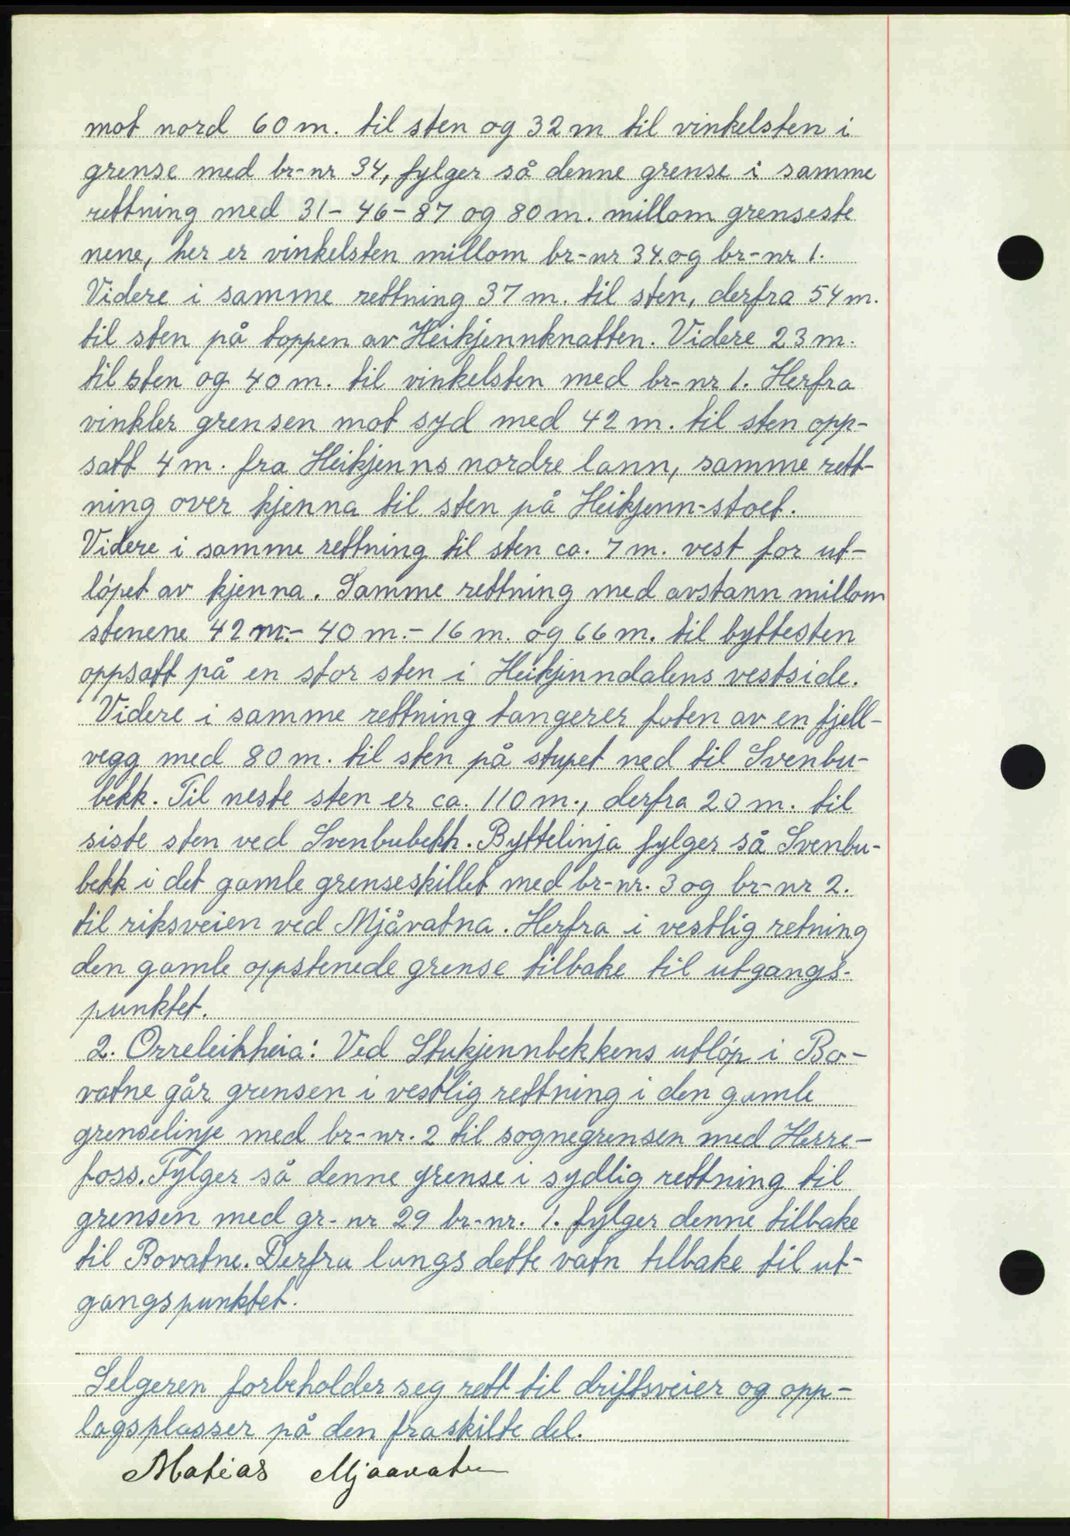 mot nord 60 m. til sten og 32 m til vinkelsten i
grense med br-nr 34, fylger så denne grense i samme
rettning med 31- 46-87 og 80 m. millom grenseste
nene, her er vinkelsten millom br-nr 34. og br-nr 1.
Videre i samme rettning 37 m. til sten, derfra 54 m.
til sten på toppen av Heikjennknatten. Videre 23 m.
til sten og 40 m. til vinkelsten med br-nr 1. Herfra
vinkler grensen mot syd med 42 m. til sten opp-
satt 4 m. fra Heikjenns nordre lann, samme rett-
ning over kjenna til sten på Heikjenn-stoet.
Videre i samme rettning til sten ca. 7 m. vest for ut-
løpet av kjenna. Samme rettning med avstann millom
stenene 42 m.- 40 m.- 16 m. og 66 m. til byttesten
oppsatt på en stor sten i Heikjenndalens vestside.
Videre i samme rettning tangerer foten av en fjell-
vegg med 80 m. til sten på stupet ned til Svenbu-
bekk. Til neste sten er ca. 110 m., derfra 20 m. til
siste sten ved Svenbubekk. Byttelinja fylger så Svenbu-
bekk i det gamle grenseskillet med br-nr. 3 og br-nr 2.
til riksveien ved Mjåvatna. Herfra i vestlig retning
den gamle oppstenede grense tilbake til utgangs-
punktet.
2. Orreleikheia: Ved Stukjennbekkens utløp i Bo-
vatne går grensen i vestlig rettning i den gamle
grenselinje med br-nr. 2 til sognegrensen med Herre-
foss. Fylger så denne grense i sydlig rettning til
grensen med gr-nr 29 br-nr. 1. fylger denne tilbake
til Bovatne. Derfra langs dette vatn tilbake til ut-
gangspunktet.
Selgeren forbeholder seg rett til driftsveier og opp-
lagsplasser på den fraskilte del.
Matias Mjaavatn